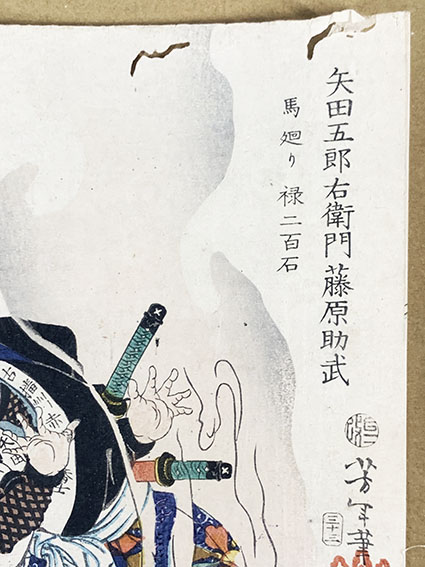 矢田五郎右衛門藤原助武
馬廻り 禄二百石
芳年筆
三十二